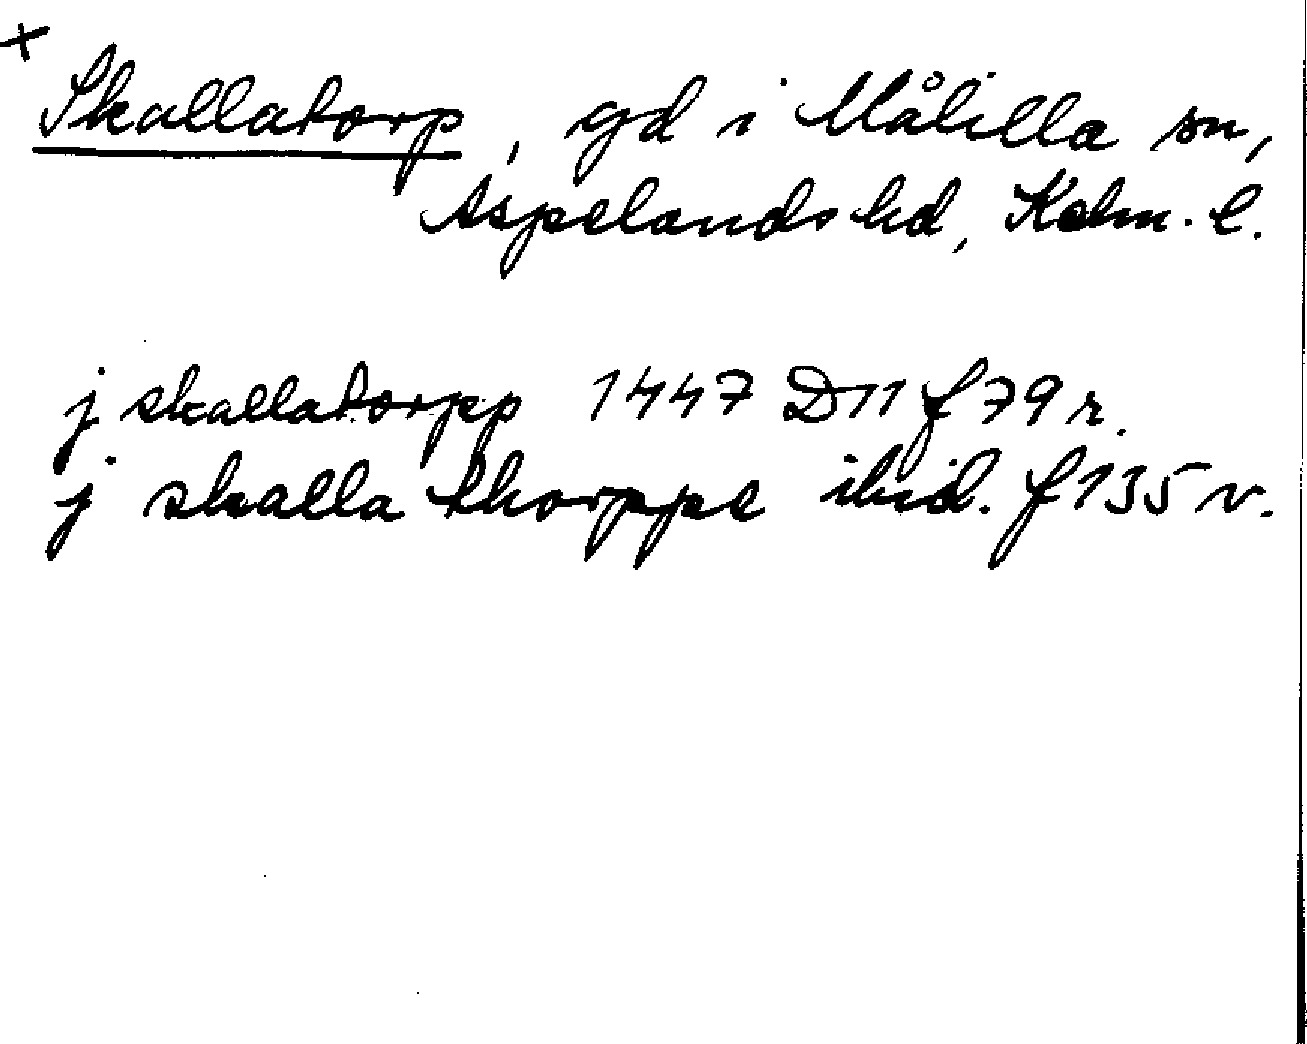 +
Skallatorp, gd i Målilla sn,
Aspelands hd, Kalm. l.
j skallatorpp 1447 D11 f 79 r.
j skalla thorppe ibid. f 135 v.